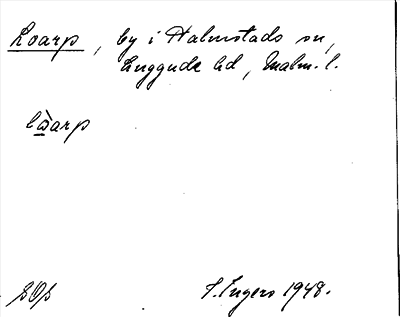 Loarp, by i Halmstads sn,
Luggude hd, Malm. l.
lòarp
SOp
I. Ingers 1948.